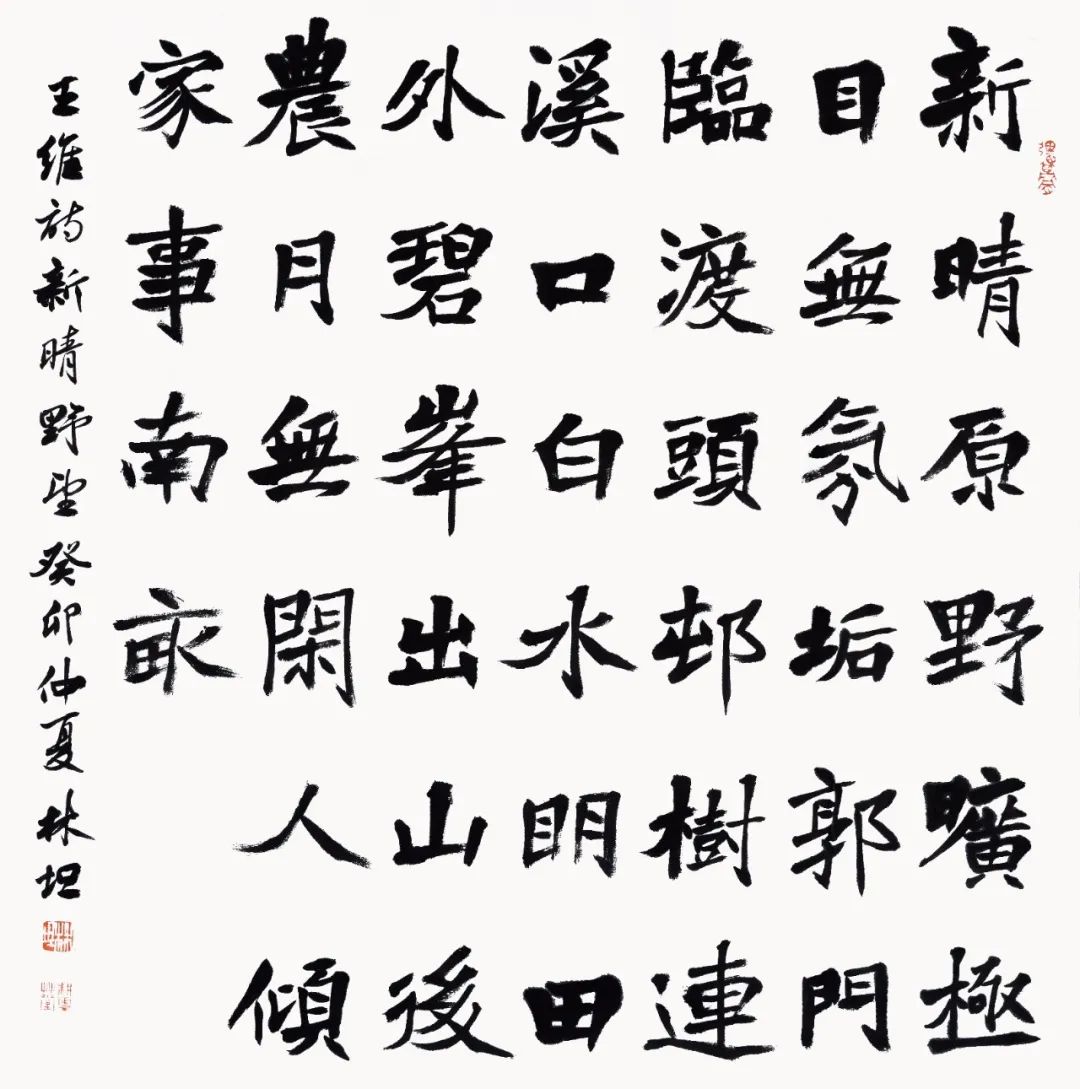 新晴原野曠極
目無氛垢郭門
臨渡頭邨樹連
溪口白水明田
外碧峯出山後
農月無閑人傾
家事南畝
王維詩新晴野望癸卯仲夏林坦